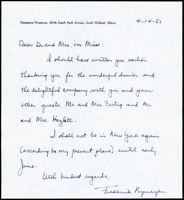 Frederick Nymeyer, South Park Avenue, South Holland, Illinois
4-14-51
Dear Dr. and Mrs. von Mises:
I should have written you earlier
thanking you for the wonderful dinner and
the delightful company with you and your
other guests, Mr. and Mrs. Fertig and Mr.
and Mrs. Hazlitt.
I shall not be in New York again
(according to my present plans) until early
June.
With kindest regards,
Frederick Nymeyer